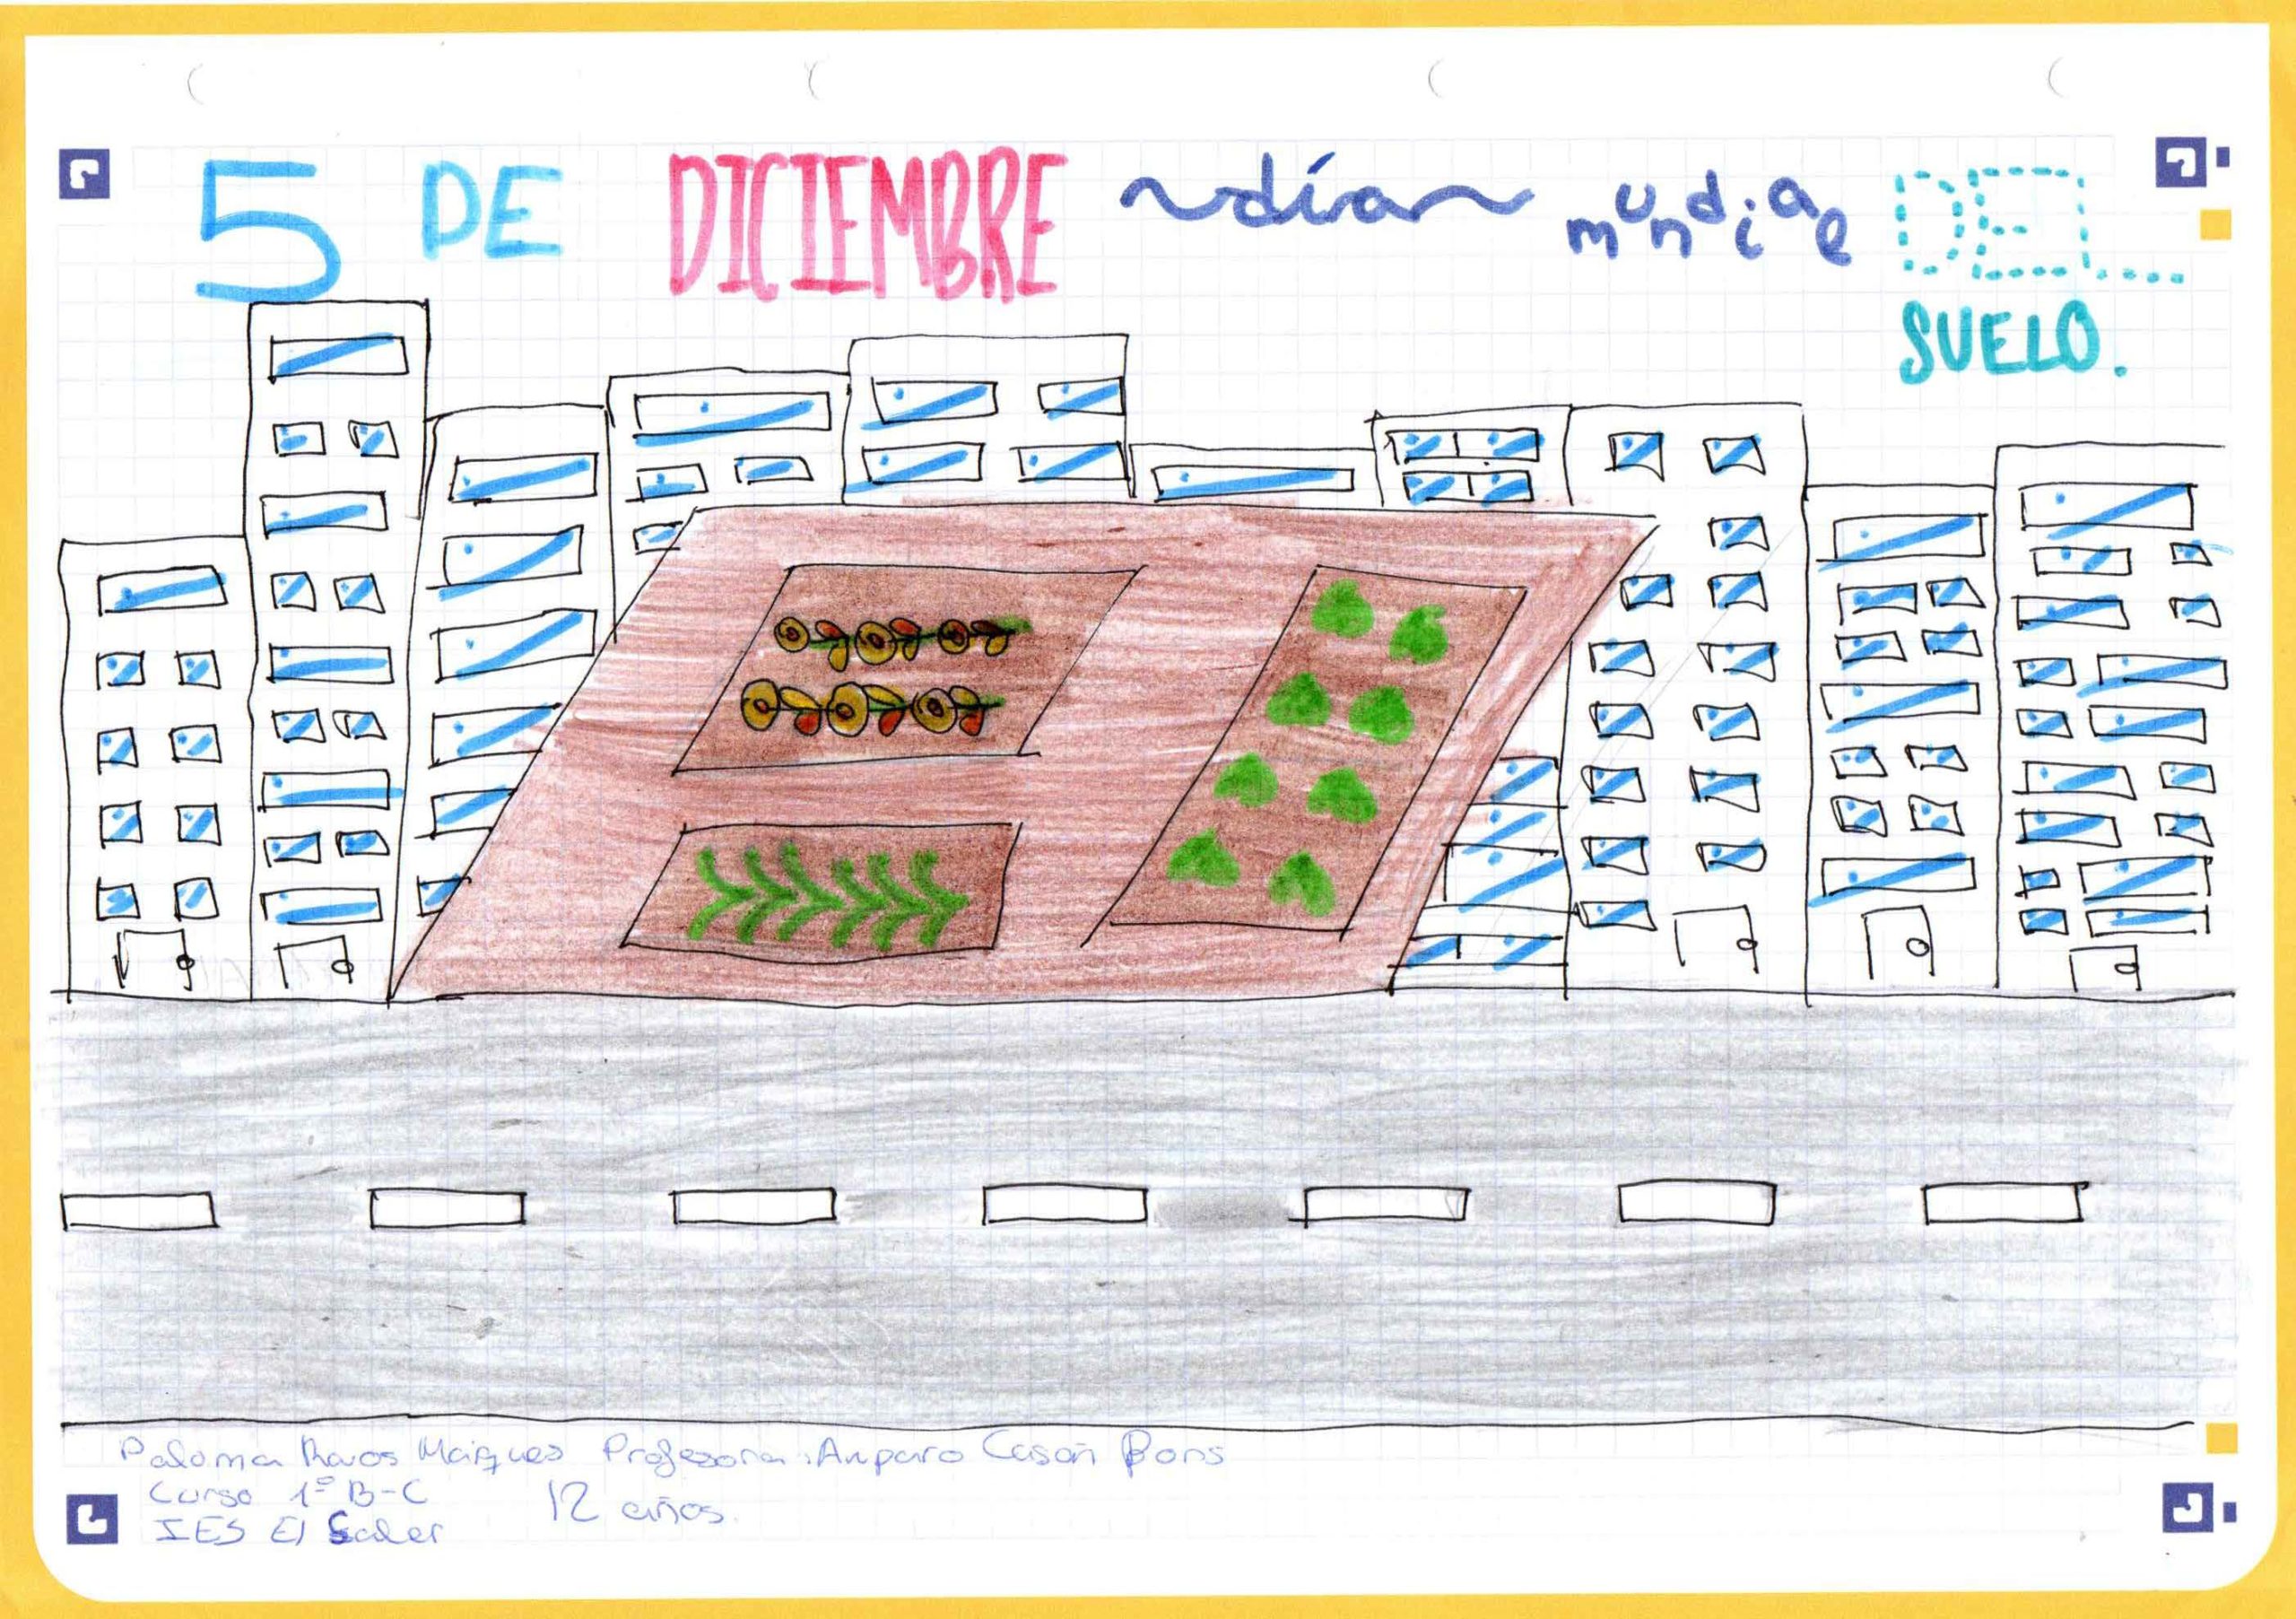 5 DE DICIEMBRE día mundial DEL
SUELO.
Paloma Profesora: Amparo Casañ Bons
Curso 1º B-C 12 años.
IES El Saler